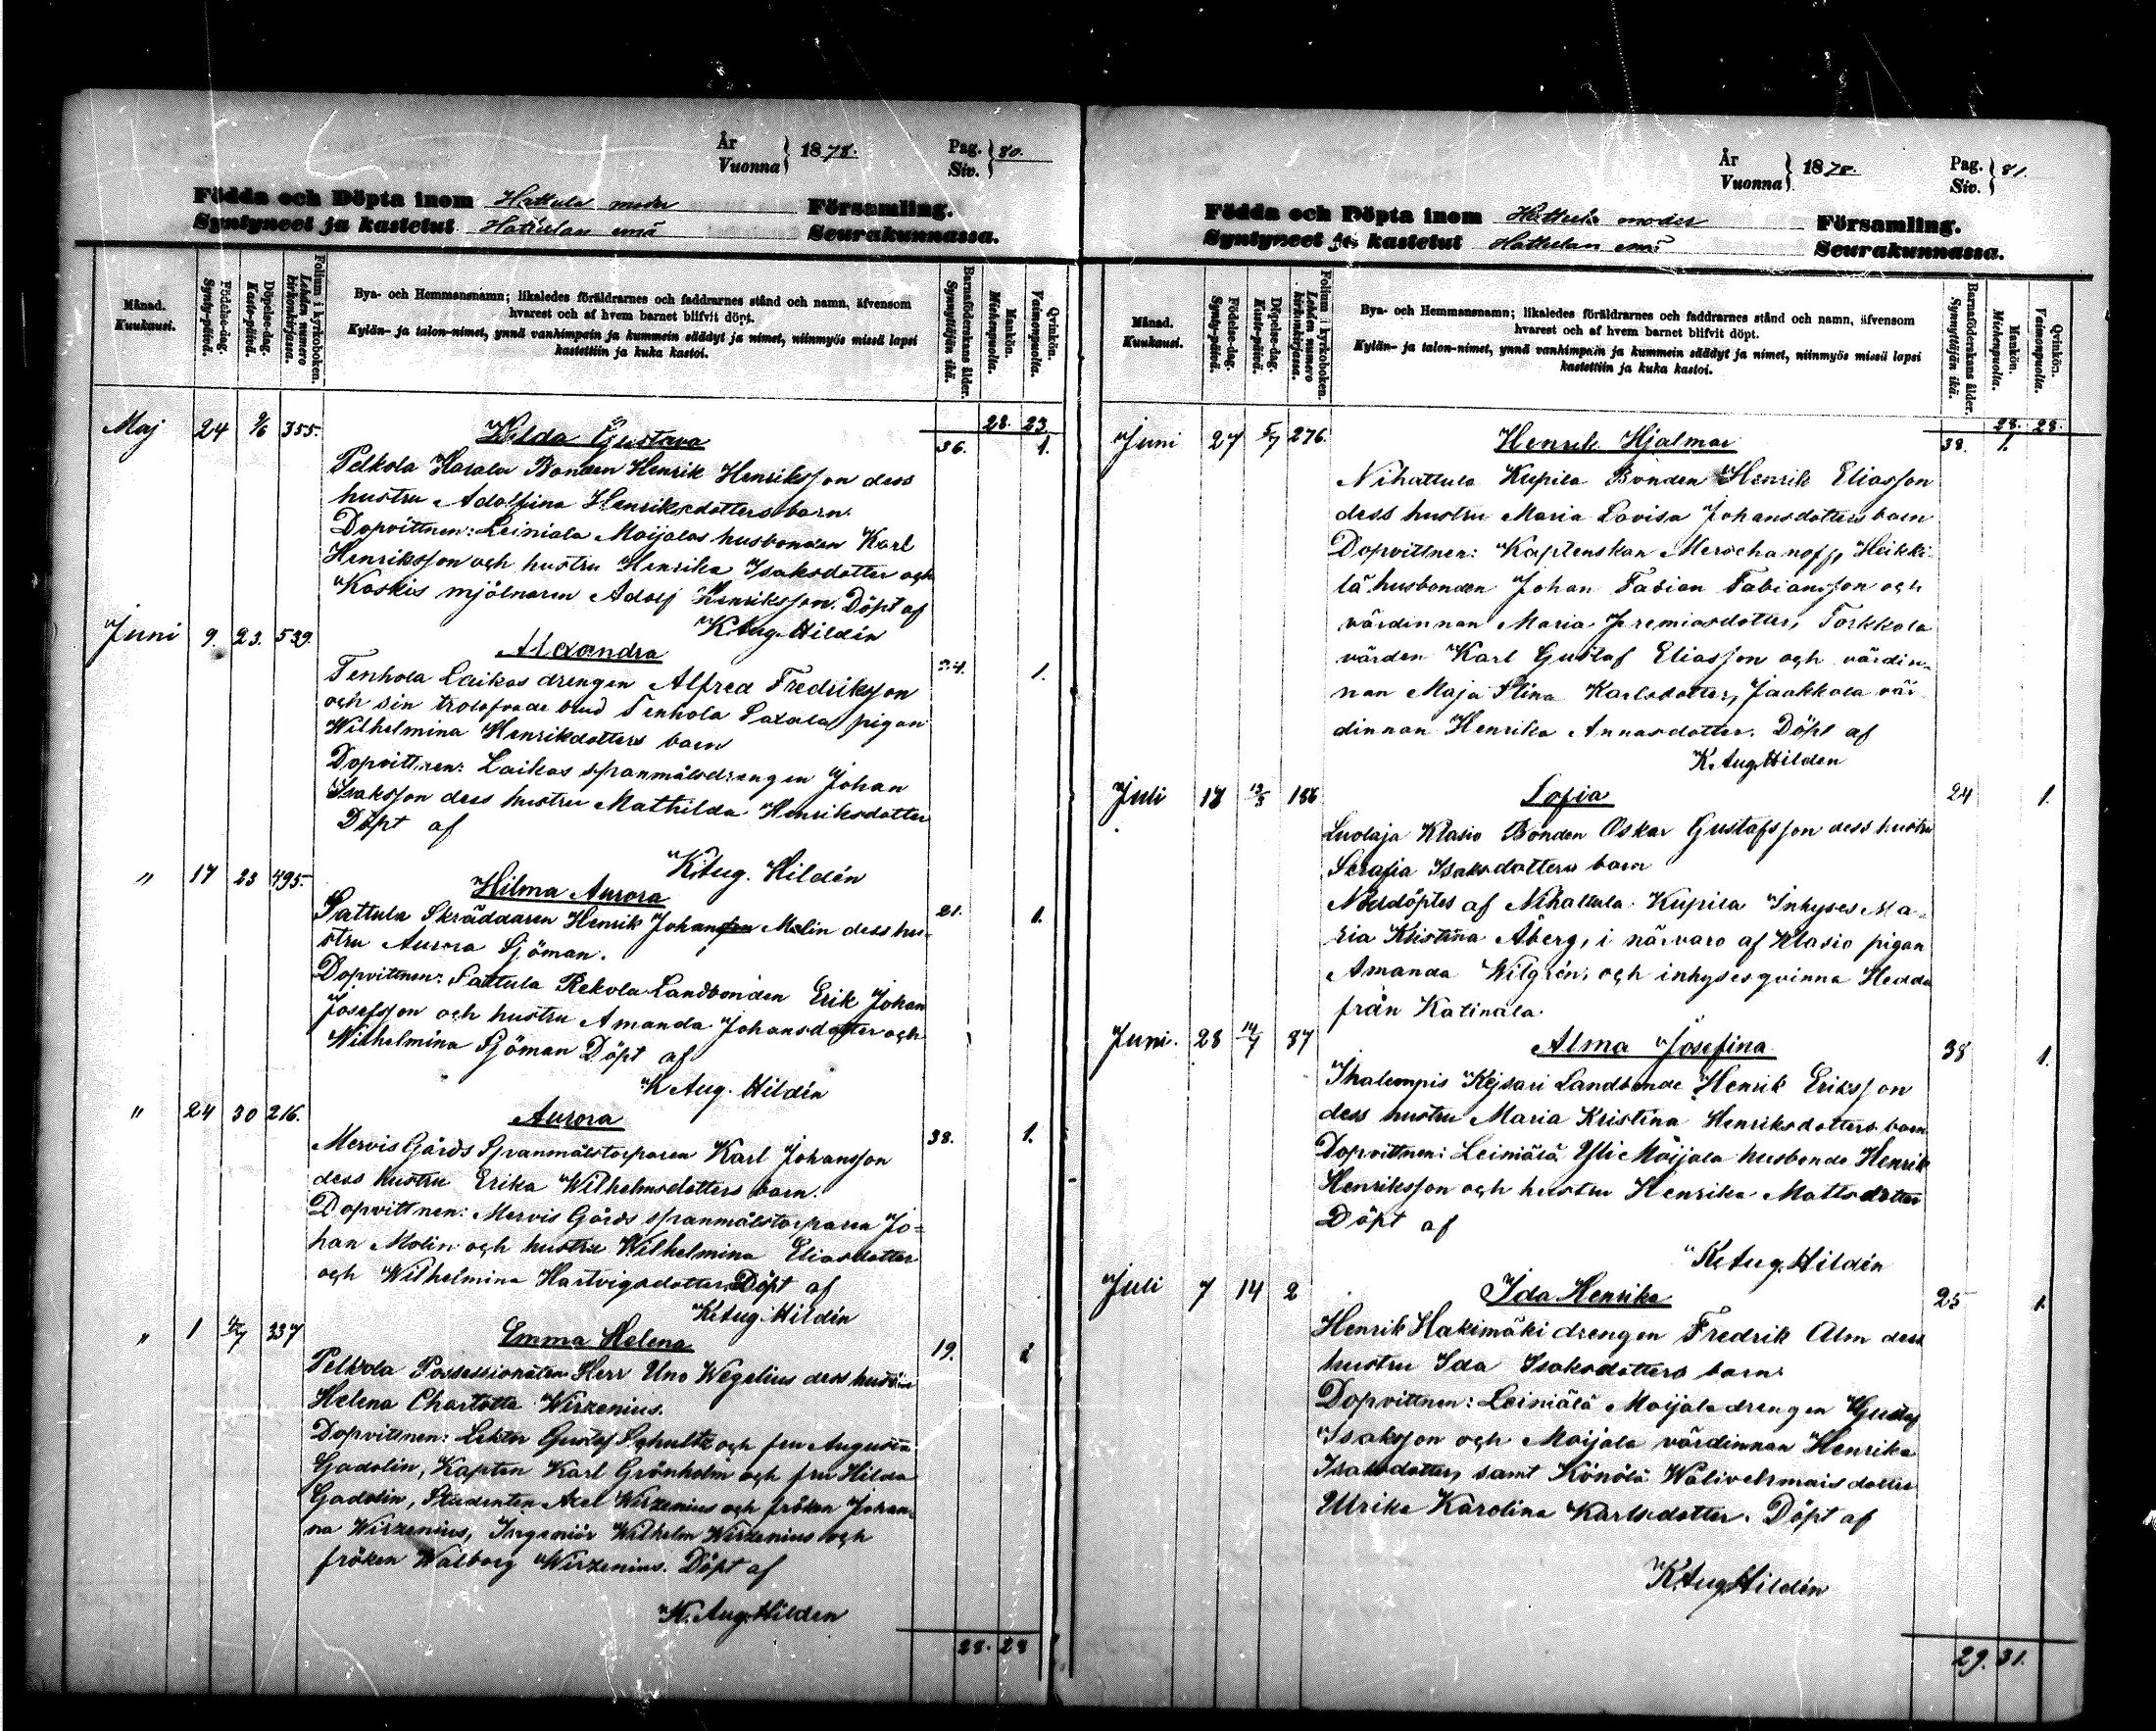 År
Vuonna } 1878. Pag.
Siv. } 80.
Födda och Döpta inom Hattula moder Församling.
Syntyneet ja kastetut Hattulan emä Seurakunnassa.
Månad.
Kuukausi.
Födelse-dag.
Synty-päivä.
Döpelse-dag.
Kaste-päivä.
Folium i kyrkoboken.
Lehden numero
kirkonkirjassa.
Bya- och Hemmansnamn; likaledes föräldrarnes och faddrarnes stånd och namn, äfvensom
hvarest och af hvem barnet blifvit döpt.
Kylän- ja talon-nimet, ynnä vanhimpain ja kummein säädyt ja nimet, niinmyös missä lapsi
kastettiin ja kuka kastoi.
Barnaföderskans ålder.
Synnyttäjän ikä.
Mankön.
Miehenpuolia.
Qvinkön.
Vaimonpuolia.
28. 23
Maj 24 9/6 355. Hilda Gustava 36. 1.
Pelkola Harala Bonden Henrik Henriksson dess
hustru Adolfina Henriksdotters barn.
Dopvittnen: Leiniala Moijalas husbonden Karl
Henriksson och hustru Henrika Isaksdotter och
Koskis mjölnaren Adolf Henriksson. Döpt af
K. Aug. Hildén
Juni 9. 23. 539. Alexandra 24. 1.
Tenhola Laikas drengen Alfred Fredriksson
och sin trolofvade brud Tenhola Saxala pigan
Wilhelmina Henrikdotters barn
Dopvittnen: Laikas spanmålsdrengen Johan
Isaksson dess hustru Mathilda Henriksdotter
Döpt af
K. Aug. Hildén
" 17 23 495. Hilma Aurora 21. 1.
Sattula Skräddaren Henrik Johan Malin dess hu-
stru Aurora Sjöman.
Dopvittnen: Sattula Rekola Landbonden Erik Johan
Josefsson och hustru Amanda Johansdotter och
Wilhelmina Sjöman Döpt af
K. Aug. Hildén
" 24 30 216. Aurora 38. 1.
Mervis Gårds Spanmålstorparen Karl Johansson
dess hustru Erika Wilhelmsdotters barn.
Dopvittnen: Mervis Gårds spanmålstorparen Jo-
han Molin och hustru Wilhelmina Eliasdotter
och Wilhelmina Hartvigsdotter. Döpt af
K. Aug. Hildén
" 1 337 Emma Helena 19. 1
Pelkola Possessionaten Herr Uno Wegelius dess hustru
Helena Charlotta Wirzenius.
Dopvittnen: Lektor Gustaf Schultz och fru Augusta
Gadolin, Kapten Karl Grönholm och fru Hilda
Gadolin, Studenten Axel Wirzenius och fröken Johan-
na Wirzenius, Ingeniör Wilhelm Wirzenius och
fröken Walborg Wirzenius. Döpt af
K. Aug. Hildén
28. 28
År
Vuonna } 1878. Pag.
Siv. } 81.
Födda och Döpta inom Hattula moder Församling.
Syntyneet ja kastetut Hattulan emä Seurakunnassa.
Månad.
Kuukausi.
Födelse-dag.
Synty-päivä.
Döpelse-dag.
Kaste-päivä.
Folium i kyrkoboken.
Lehden numero
kirkonkirjassa.
Bya- och Hemmansnamn; likaledes föräldrarnes och faddrarnes stånd och namn, äfvensom
hvarest och af hvem barnet blifvit döpt.
Kylän- ja talon-nimet, ynnä vanhimpain ja kummein säädyt ja nimet, niinmyös missä lapsi
kastettiin ja kuka kastoi.
Barnaföderskans ålder.
Synnyttäjän ikä.
Mankön.
Miehenpuolia.
Qvinkön.
Vaimonpuolia.
28. 28.
Juni 27 5/7 276. Henrik Hjalmar 38. 1.
Nihattula Kupila Bonden Henrik Eliasson
dess hustru Maria Lovisa Johansdotters barn
Dopvittnen: Kaptenskan Merschanoff, Heikki-
lä husbonden Johan Fabian Fabiansson och
värdinnan Maria Jeremiasdotter, Torkkola
värden Karl Gustaf Eliasson och värdin-
nan Maja Stina Karlsdotter, Jaakkola vär-
dinnan Henrika Annasdotter. Döpt af
K. Aug. Hildén
Juli 18 186 Sofia 24 1.
Luolaja Klasio Bonden Oskar Gustafsson dess hustru
Serafia Isaksdotters barn
Nöddöptes af Nihattula Kupila Inhyses Ma-
ria Kristina Åberg, i närvaro af Klasio pigan
Amanda Wilgrén, och inhysesqvinna Hedda
från Katinala.
Juni. 28 14/7 87 Alma Josefina 38 1.
Ihalempis Kejsari Landbonde Henrik Eriksson
dess hustru Maria Kristina Henriksdotters barn
Dopvittnen: Leiniälä Yli Moijala husbonde Henrik
Henriksson och hustru Henrika Mattsdotter
Döpt af
K. Aug. Hildén
Juli 7 14 2 Ida Henrika 25 1.
Henrik Hakimäki drengen Fredrik Alm dess
hustru Ida Isaksdotters barn.
Dopvittnen: Leiniälä Moijala drengen Gustaf
Isaksson och Moijala värdinnan Henrika
Isaksdotter, samt Könölä Walivehmais dotter
Ulrika Karolina Karlsdotter. Döpt af
K. Aug. Hildén
29. 31.